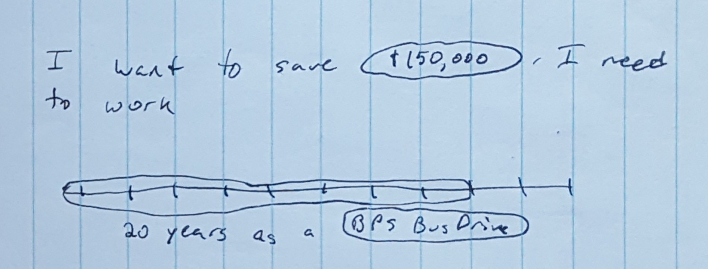 I want to save $150,000. I need
to work
20 years as a BPS Bus Drive